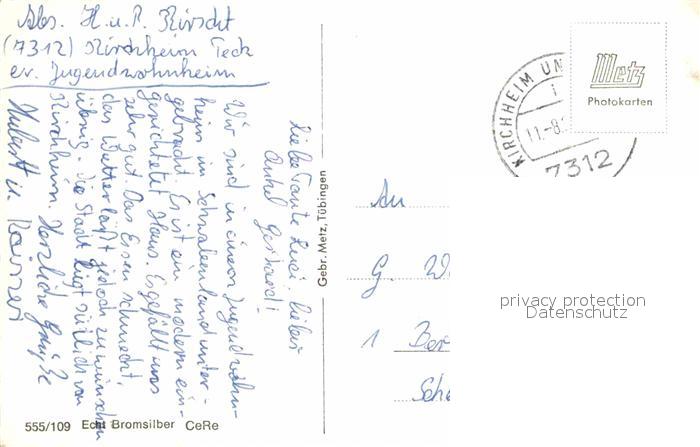 Abs. H. u. R. Kirscht
(7312) Kirchheim Teck
ev. Jugendwohnheim
Liebe Tante Luci, lieber
Onkel Gerhard!
Wir sind in einem Jugendwohn-
heim im Schwabenland unter-
gebracht. Es ist ein modern ein-
gerichtetes Haus. Es gefällt uns
sehr gut. Das Essen schmeckt,
das Wetter läßt jedoch zu wünschen
übrig. Die Stadt liegt südlich von
Kirchheim. Herzliche Grüße
u.
555/109 Echt Bromsilber CeRe
Gebr. Metz, Tübingen
KIRCHHEIM UN
11.-8.
7312
Metz
Photokarten
An
G. W
1 Ber
Sch
privacy protection
Datenschutz